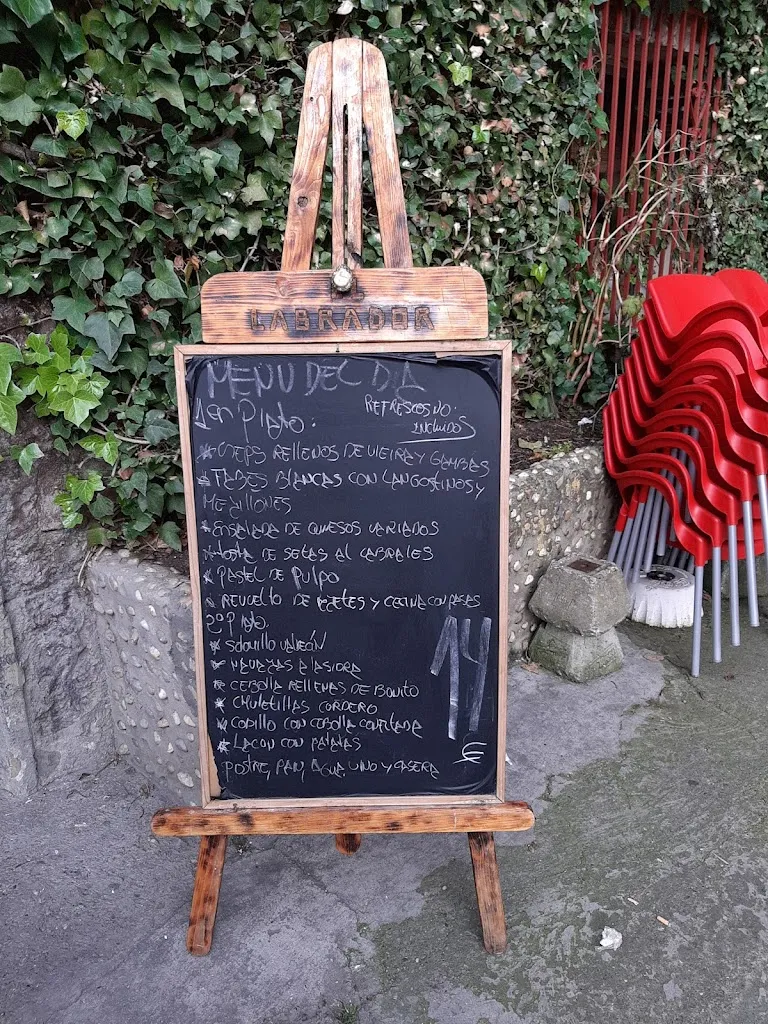 EL
LABRADOR
MENU DEL DIA
1er Plato.
REFRESCOS NO
INCLUIDOS
* CREPS RELLENOS DE VIEIRA Y GAMBAS
* FABES BLANCAS CON LANGOSTINOS Y
MEJILLONES
* ENSALADA DE QUESOS VARIADOS
* TOSTA DE SETAS AL CABRALES
* PASTEL DE PULPO
* REVUELTO DE Y CECINA CON PASAS
2º Plato.
*
*
* CEBOLLA RELLENAS DE BONITO
* CHULETILLAS CORDERO
* CODILLO CON CEBOLLA CONFITADA
* LACON CON PATATAS
POSTRE, PAN, AGUA, VINO Y CASERA
14
€